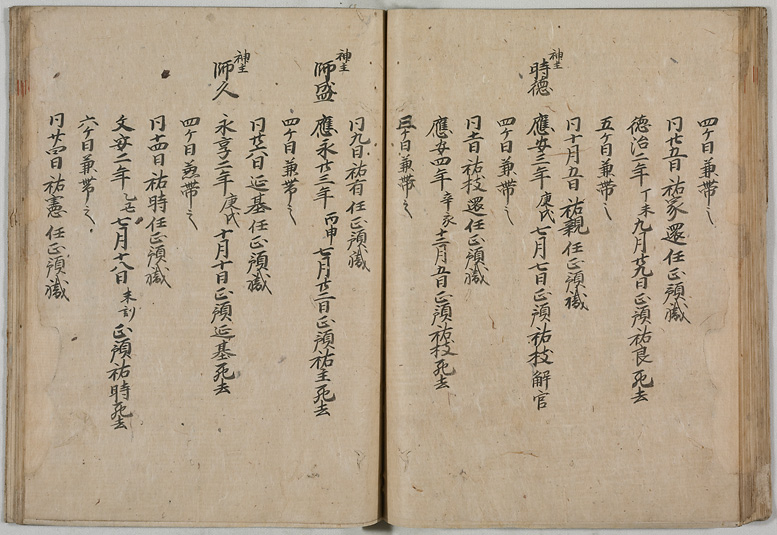 四ケ日兼帯之
同廿五日祐家還任正預職
徳治二年丁未九月廿九日正預祐良死去
五ケ日兼帯之
同十月五日祐親任正預職
神主時徳 應安三年庚戌七月七日正預祐枝解官
四ケ日兼帯之
同十一日祐枝還任正預職
應安四年辛亥十二月五日正預祐枝死去
三ケ日兼帯之
同九日祐有任正預職
神主師盛 應永廿三年丙申七月廿二日正預祐主死去
四ケ日兼帯之
同廿六日延基任正預職
神主師久 永享二年庚戌十月十日正預延基死去
四ケ日兼帯之
同十四日祐時任正預職
文安二年乙丑七月十八日未刻正預祐時死去
六ケ日兼帯之
同廿四日祐憲任正預職